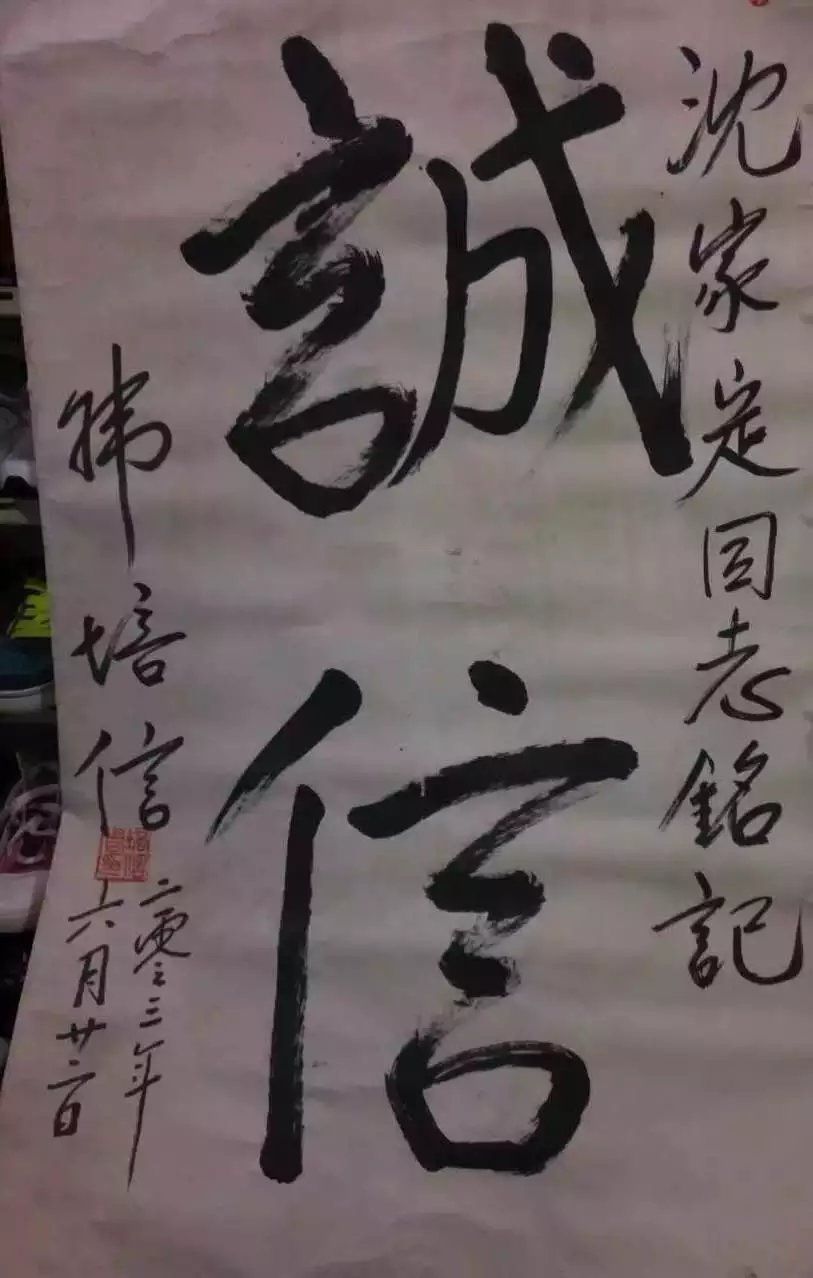 沈家定同志銘記
誠信
韩培信
二零零三年
六月廿二日